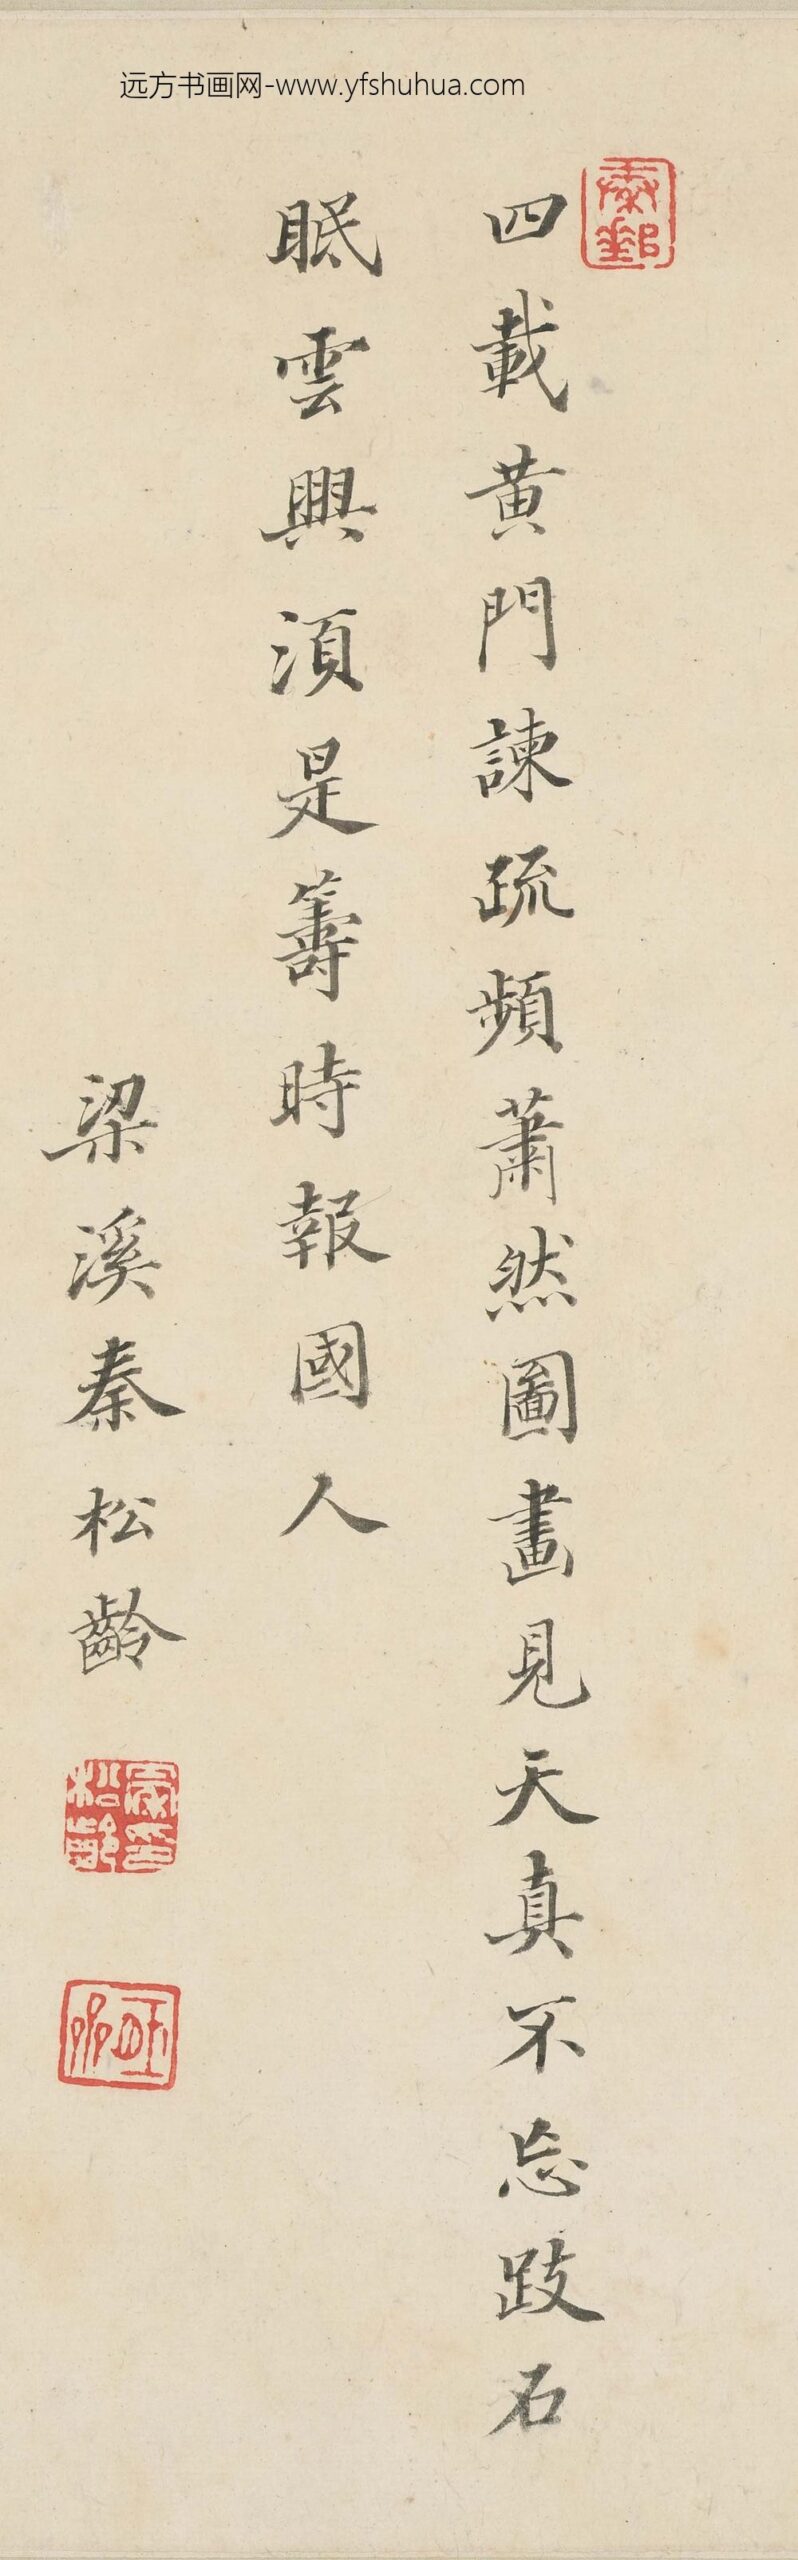 远方书画网-www.yfshuhua.com
四載黄門諫疏頻蕭然圖畫見天真不忘跂石
眠雲興湏是籌時報國人
梁溪秦松齡
秦印松齡